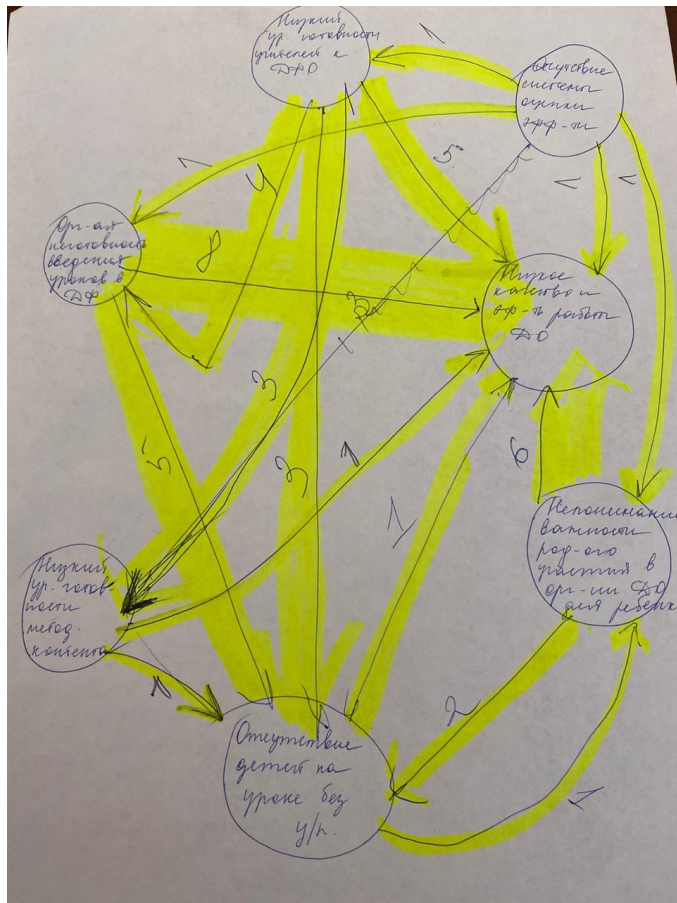 Низкий
ур. готовности
учителей к
ДФО
1
Отсутствие
системы
оценки
эфф-ти
1
4
5
1
1
Орг-ая
неготовность
введения
уроков в
ДФ
8
Низкое
качество и
эф-ть работы
ДО
3
3
3
5
1
1
6
Непонимание
важности
род-ого
участия в
орг-ии ДО
для ребенка
Низкий
ур. готов-
ности
метод.
контента
1
2
Отсутствие
детей на
уроке без
у/п.
1